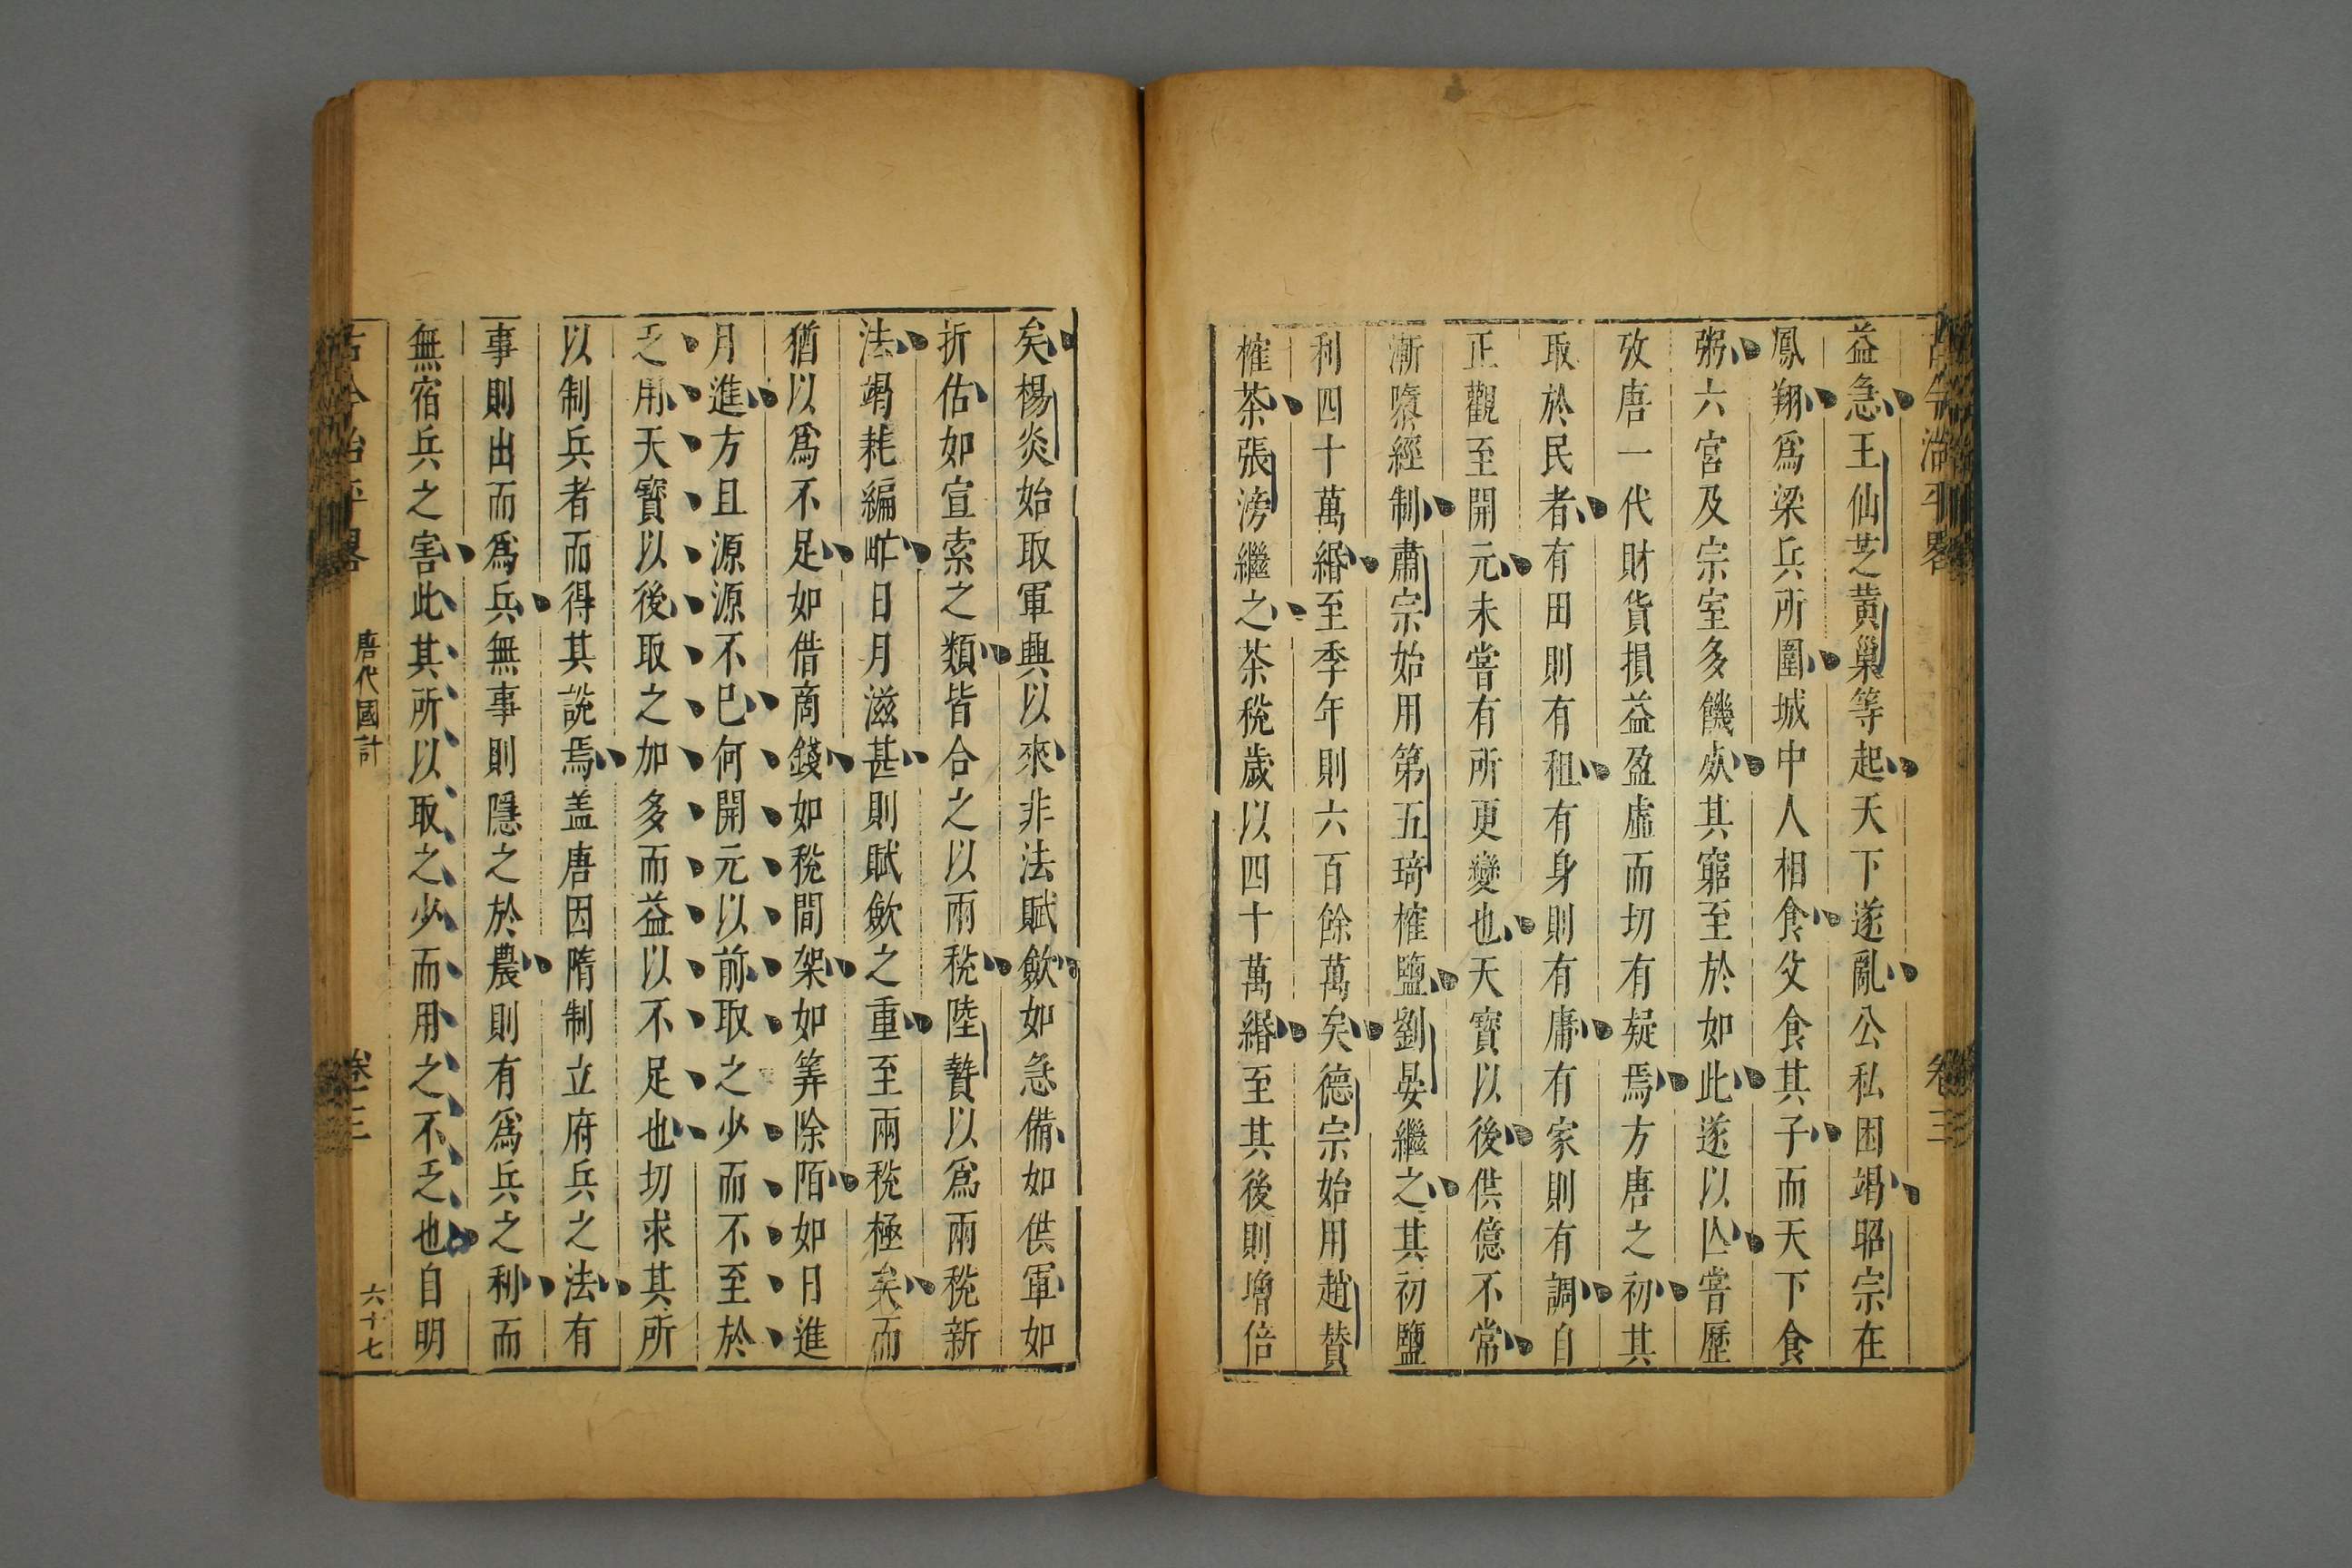 古今治平畧
卷三
益急王仙芝黄巢等起天下遂亂公私困竭昭宗在
鳳翔爲梁兵所圍城中人相食父食其子而天下食
粥六宮及宗室多餓死其窮至於如此遂以亾嘗歷
攷唐一代財貨損益盈虛而切有疑焉方唐之初其
取於民者有田則有租有身則有庸有家則有調自
正觀至開元未嘗有所更變也天寶以後供億不常
漸隳經制肅宗始用第五琦榷鹽劉晏繼之其初鹽
利四十萬緡至季年則六百餘萬矣德宗始用趙賛
榷茶張滂繼之茶稅歲以四十萬緡至其後則增倍
矣楊炎始取軍興以來非法賦斂如急備如供軍如
折估如宣索之類皆合之以兩稅陸贄以爲兩稅新
法竭耗編甿日月滋甚則賦斂之重至兩稅極矣而
猶以爲不足如借商錢如稅間架如筭除陌如日進
月進方且源源不已何開元以前取之少而不至於
乏用天寶以後取之加多而益以不足也切求其所
以制兵者而得其說焉盖唐因隋制立府兵之法有
事則出而爲兵無事則隱之於農則有爲兵之利而
無宿兵之害此其所以取之少而用之不乏也自明
古今治平畧
唐代國計
卷三
六十七